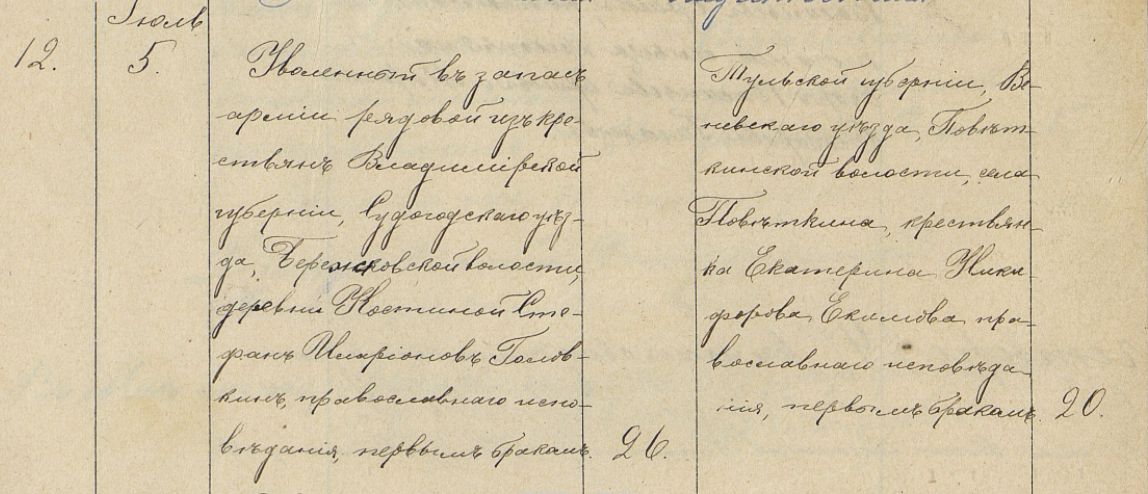 Іюль
12.
5.
Уволенный въ запасъ
арміи рядовой изъ кре-
стьянъ Владимірской
губерніи, Судогодскаго уѣз-
да, Бережковской волости,
деревни Костиной Сте-
фанъ Иларіоновъ Голов-
кинъ, православнаго испо-
вѣданія, первымъ бракомъ.
26.
Тульской губерніи, Ве-
невскаго уѣзда, Повѣт-
кинской волости, села
Повѣткина, крестьян-
ка Екатерина Ники-
форова Екимова, пра-
вославнаго исповѣда-
нія, первымъ бракомъ.
20.